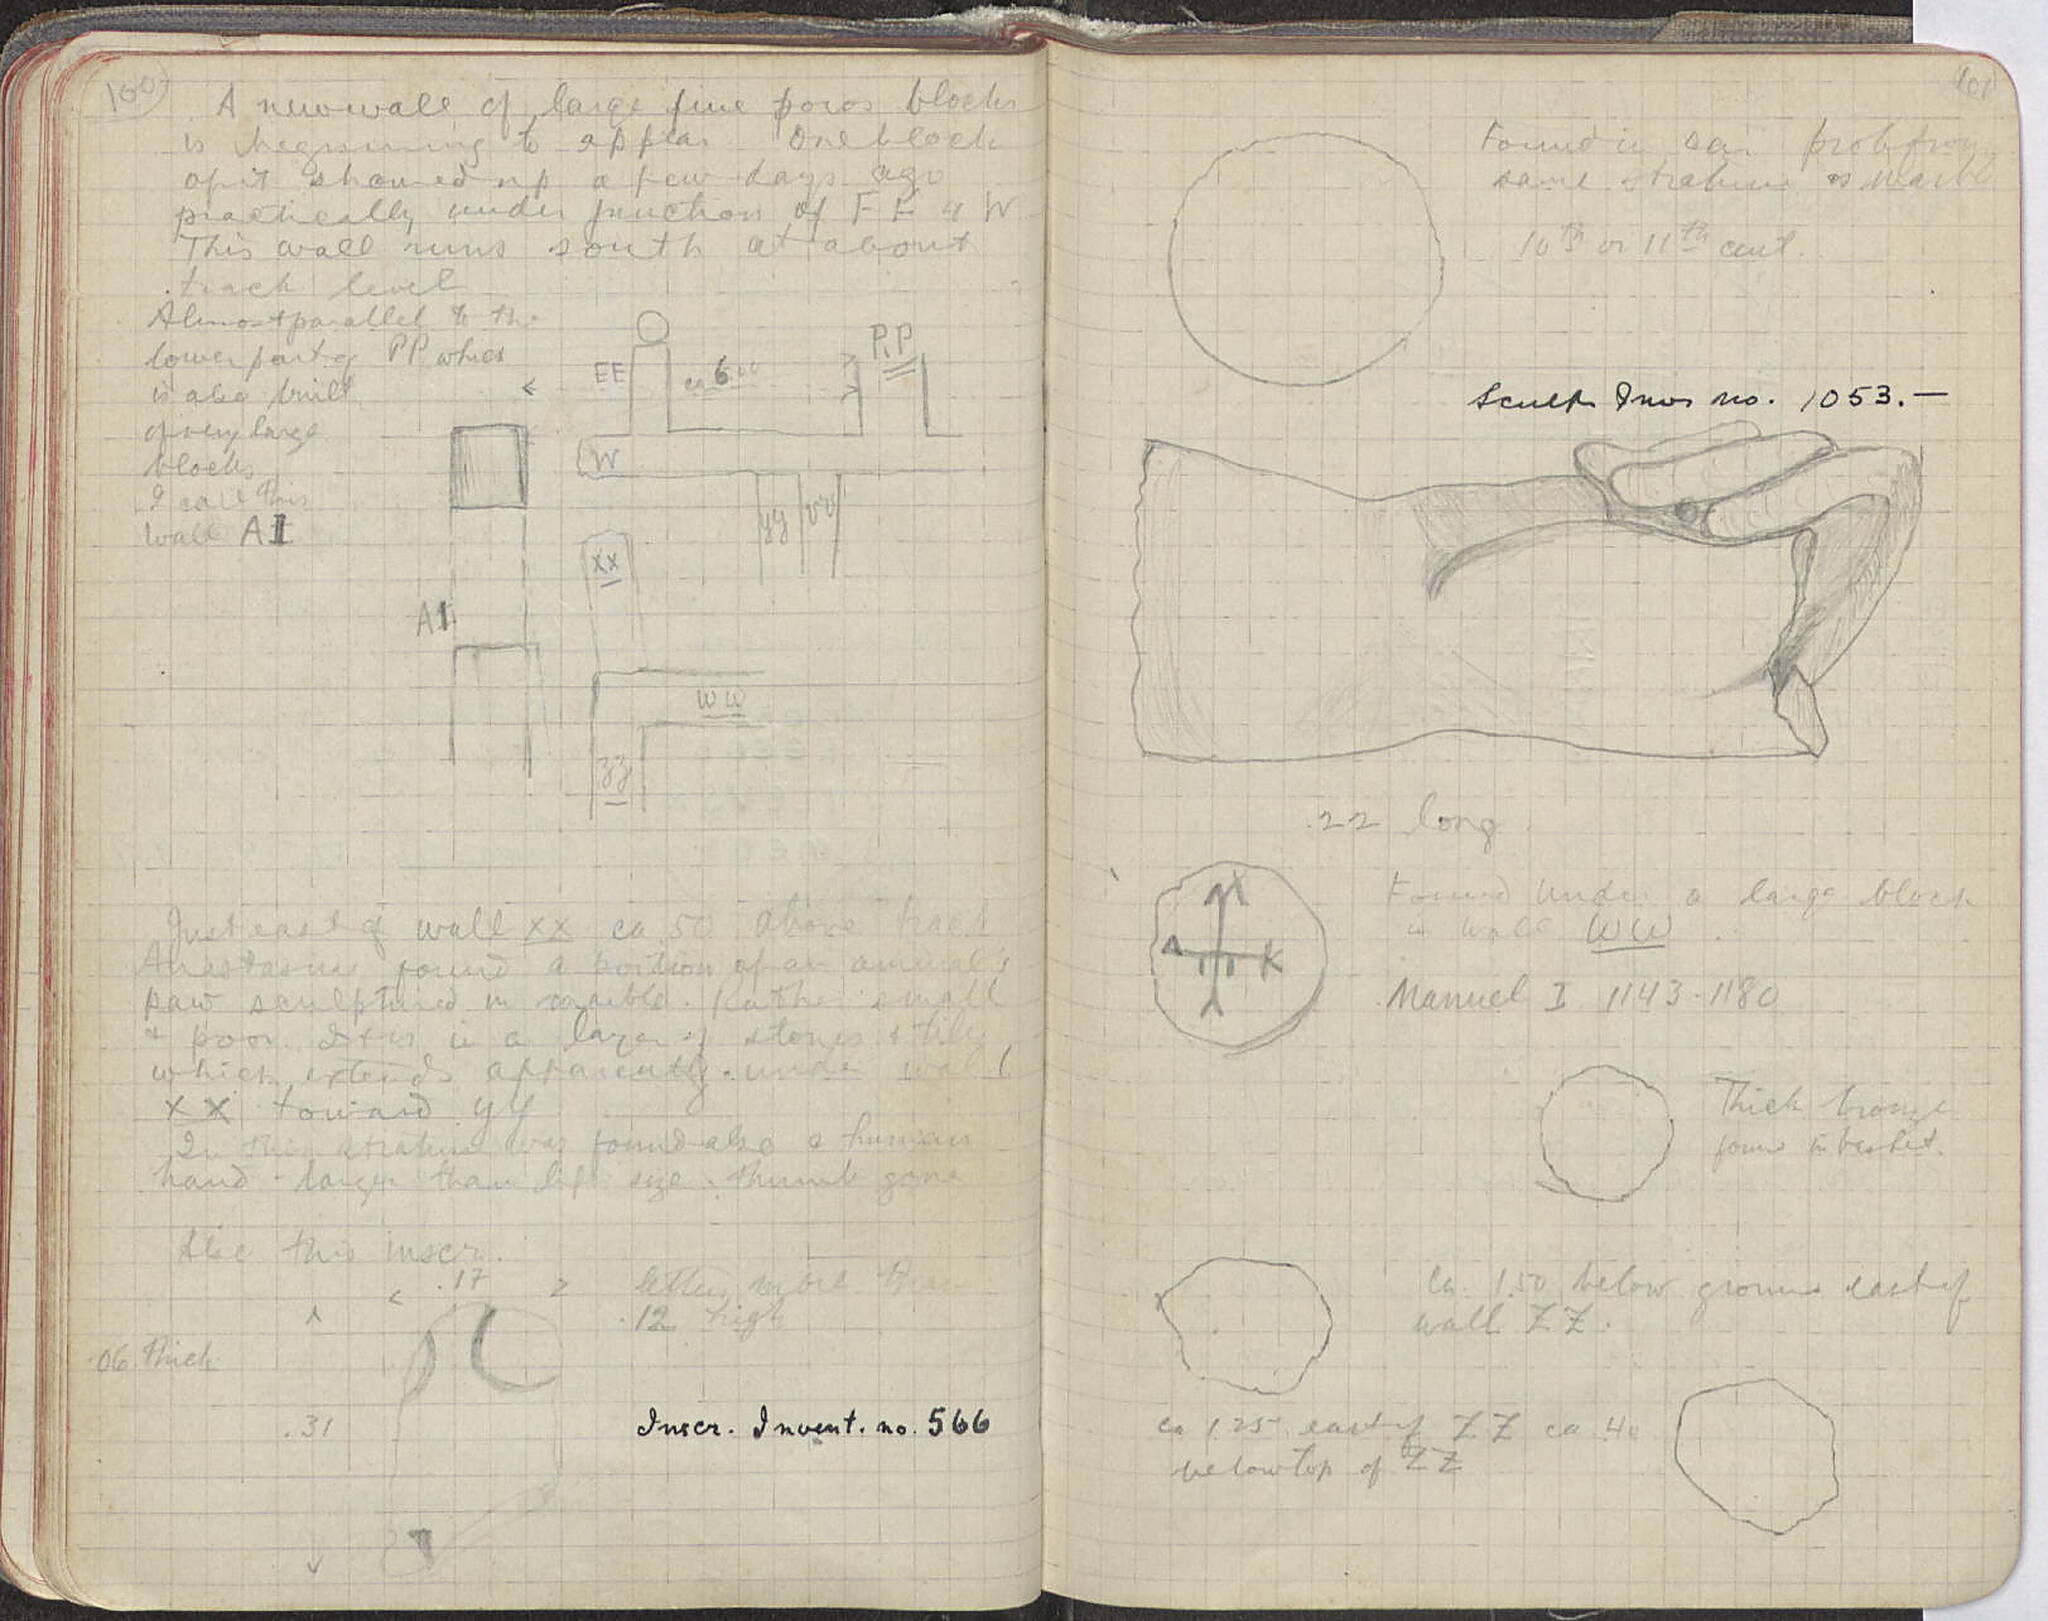 100
A new wall of large fine poros blocks
is beginning to appear. One block
of it showed up a few days ago
practically under junction of EE & W
This wall runs south at about
track level
Almost parallel to the
lower part of PP which
is also built
of very large
blocks
I call this
wall A1
EE
ca 6.00
PP
W
yy
vv
xx
A1
WW
zz
Just east of wall xx ca .50 above track
Anastasius found a portion of an animal's
paw sculptured in marble. Rather small
& poor. It is in a layer of stones & tiles
which extends apparently under wall
XX toward yy
In this stratum was found also a human
hand - larger than life size - thumb gone
Also this inscr.
.17
letters more than
.12 high
.06 thick
.31
Inscr. Invent. no. 566
101
Found in soil prob from
same stratum as marble
10th or 11th cent.
Sculp Inv no. 1053.—
.22 long
Found under a large block
in wall WW.
Manuel I 1143-1180
K
Thick bronze
found in basket.
Ca. 1.50 below ground east of
wall ZZ.
ca 1.25 east of ZZ ca .40
below top of ZZ